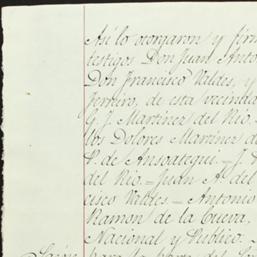 Así lo otorgaron y firm
testigos Don Juan Anto
Don Francisco Valdes, y
Ferreiro, de esta vecinda
G. J. Martinez del Rio.
los Dolores Martinez d
P. de Ansoategui.=J.
del Rio.=Juan A. del
cisco Valdes=Antonio
Ramon de la Cueva,
Nacional y Publico.